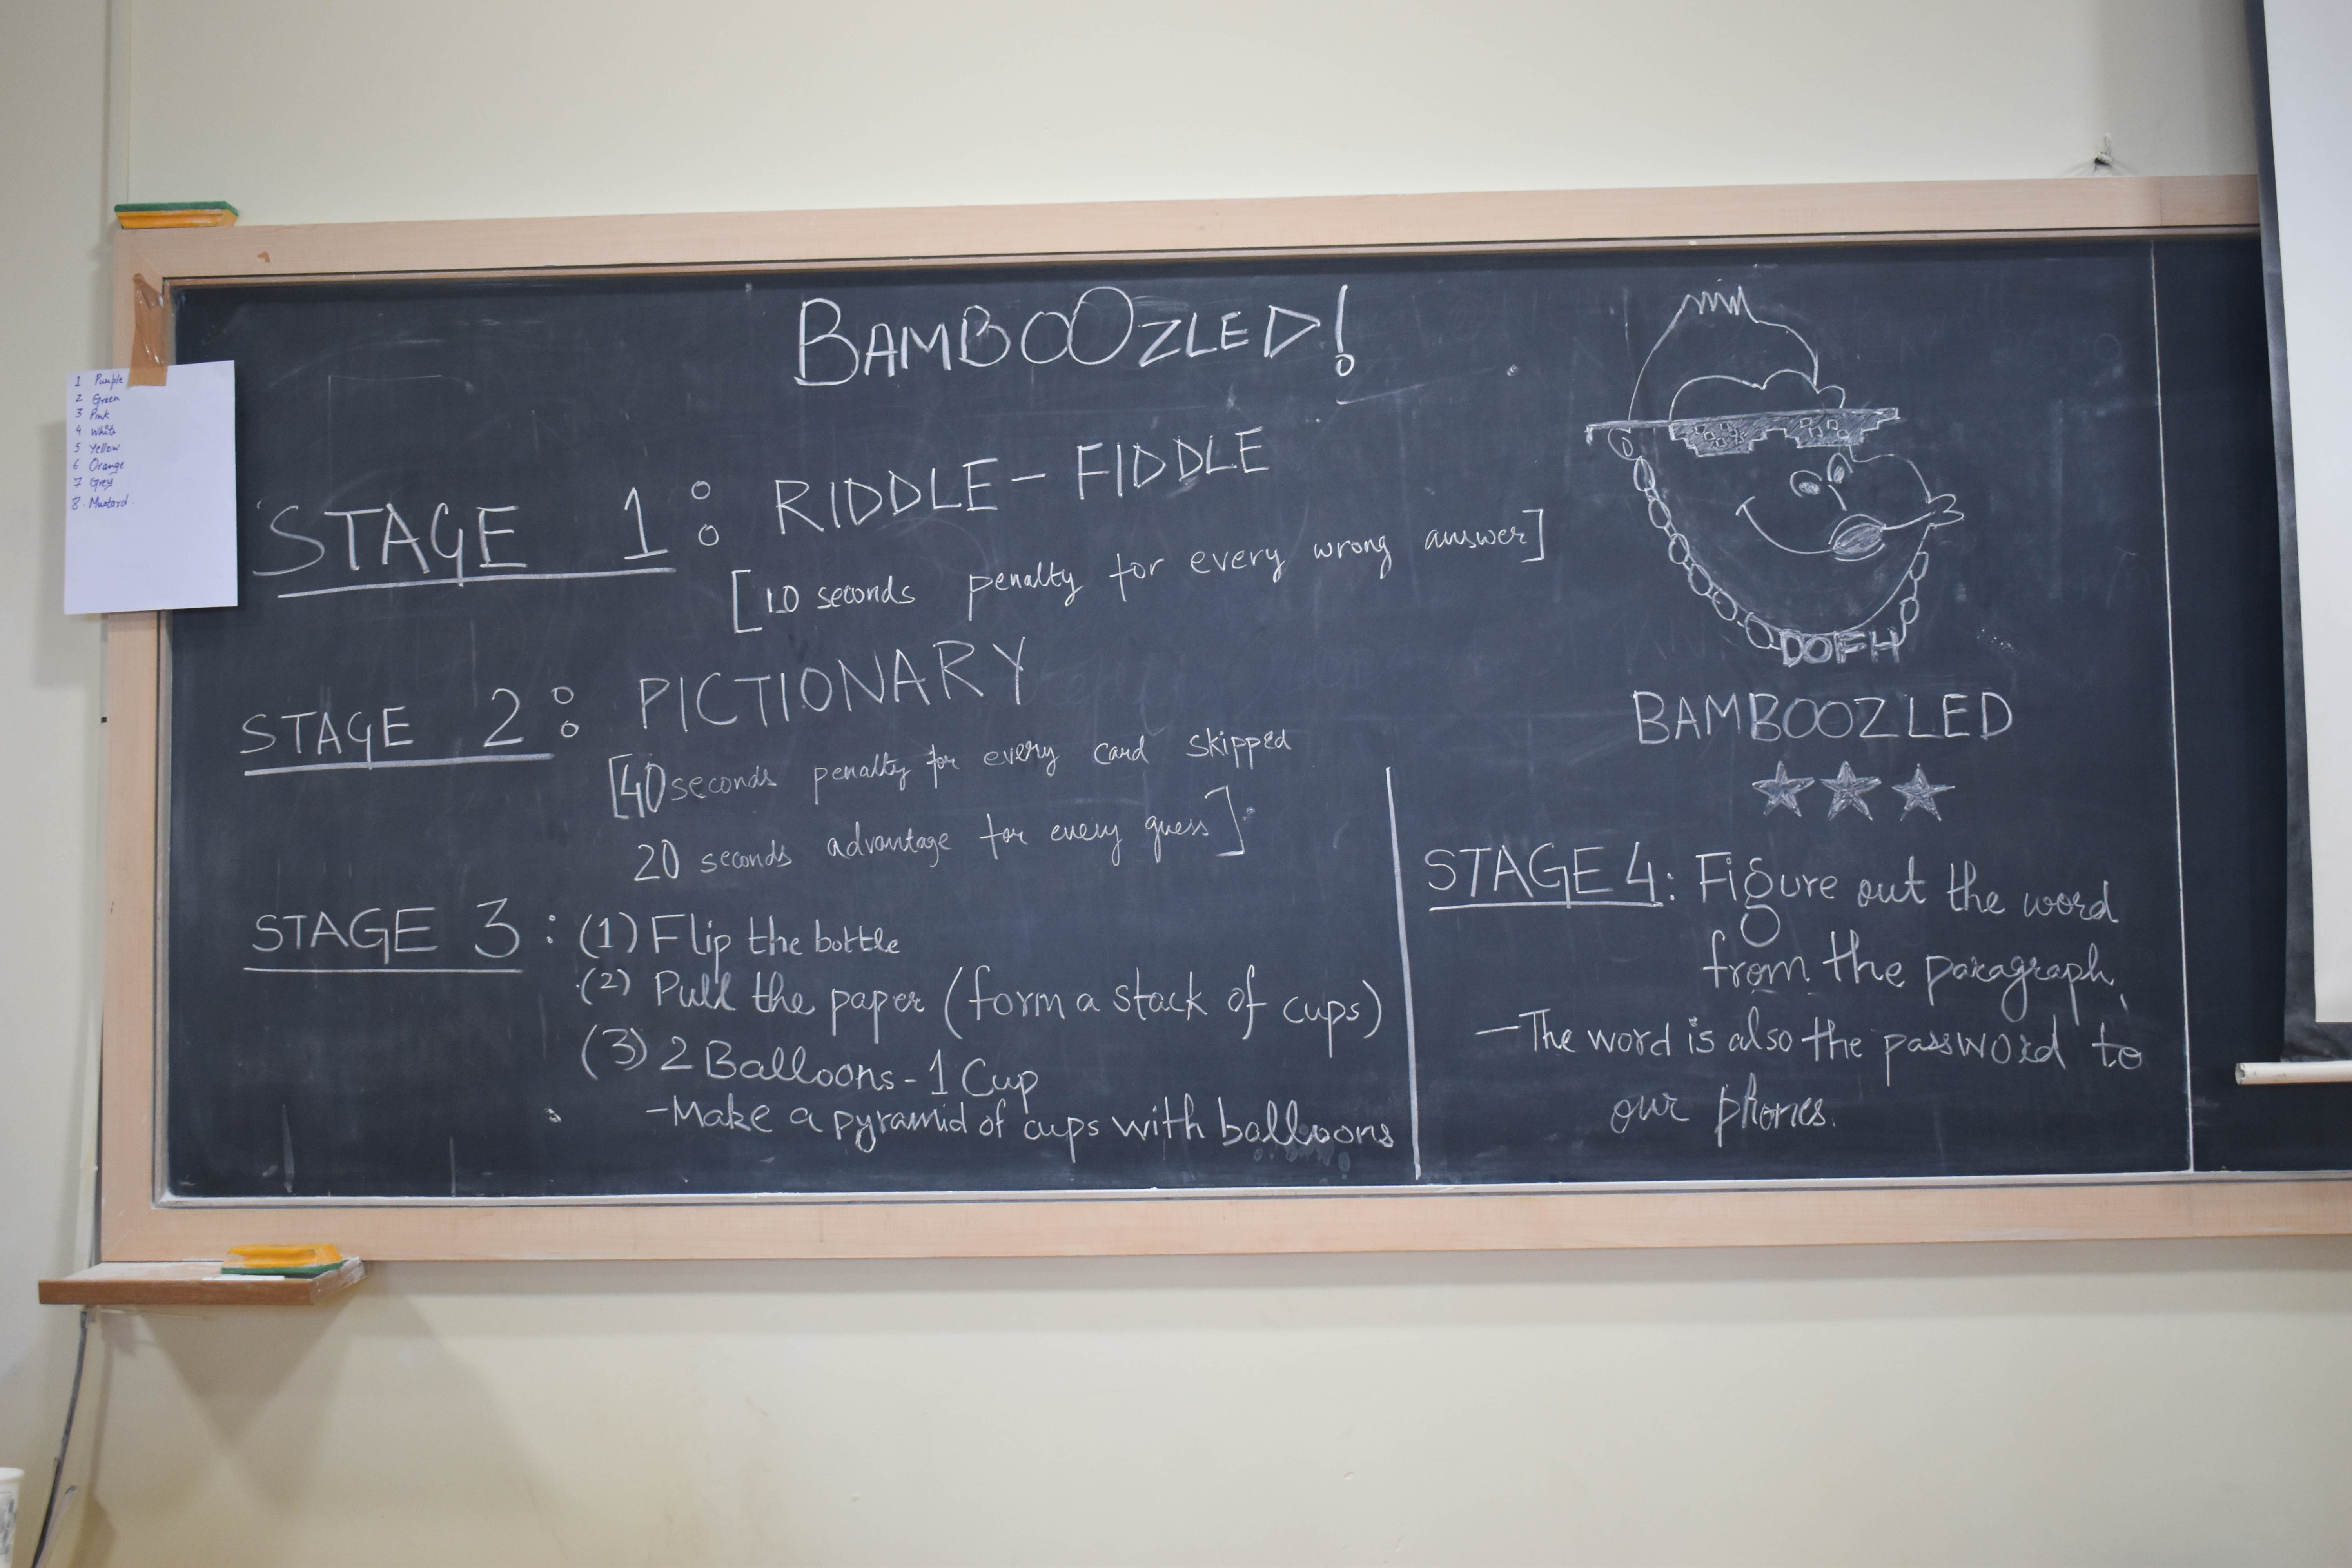 BAMBOOZLED!
1 Purple
2 Green
3 Pink
4 White
5 Yellow
6 Orange
7 Grey
8. Mustard.
STAGE 1: RIDDLE-FIDDLE
[10 seconds penalty for every wrong answer]
STAGE 2: PICTIONARY
[40 seconds penalty for every card skipped
20 seconds advantage for every guess]
STAGE 3: (1) Flip the bottle
(2) Pull the paper (form a stack of cups)
(3) 2 Balloons-1 Cup
-Make a pyramid of cups with balloons
DOFH
BAMBOOZLED
STAGE 4: Figure out the word
from the paragraph.
-The word is also the password to
our phones.